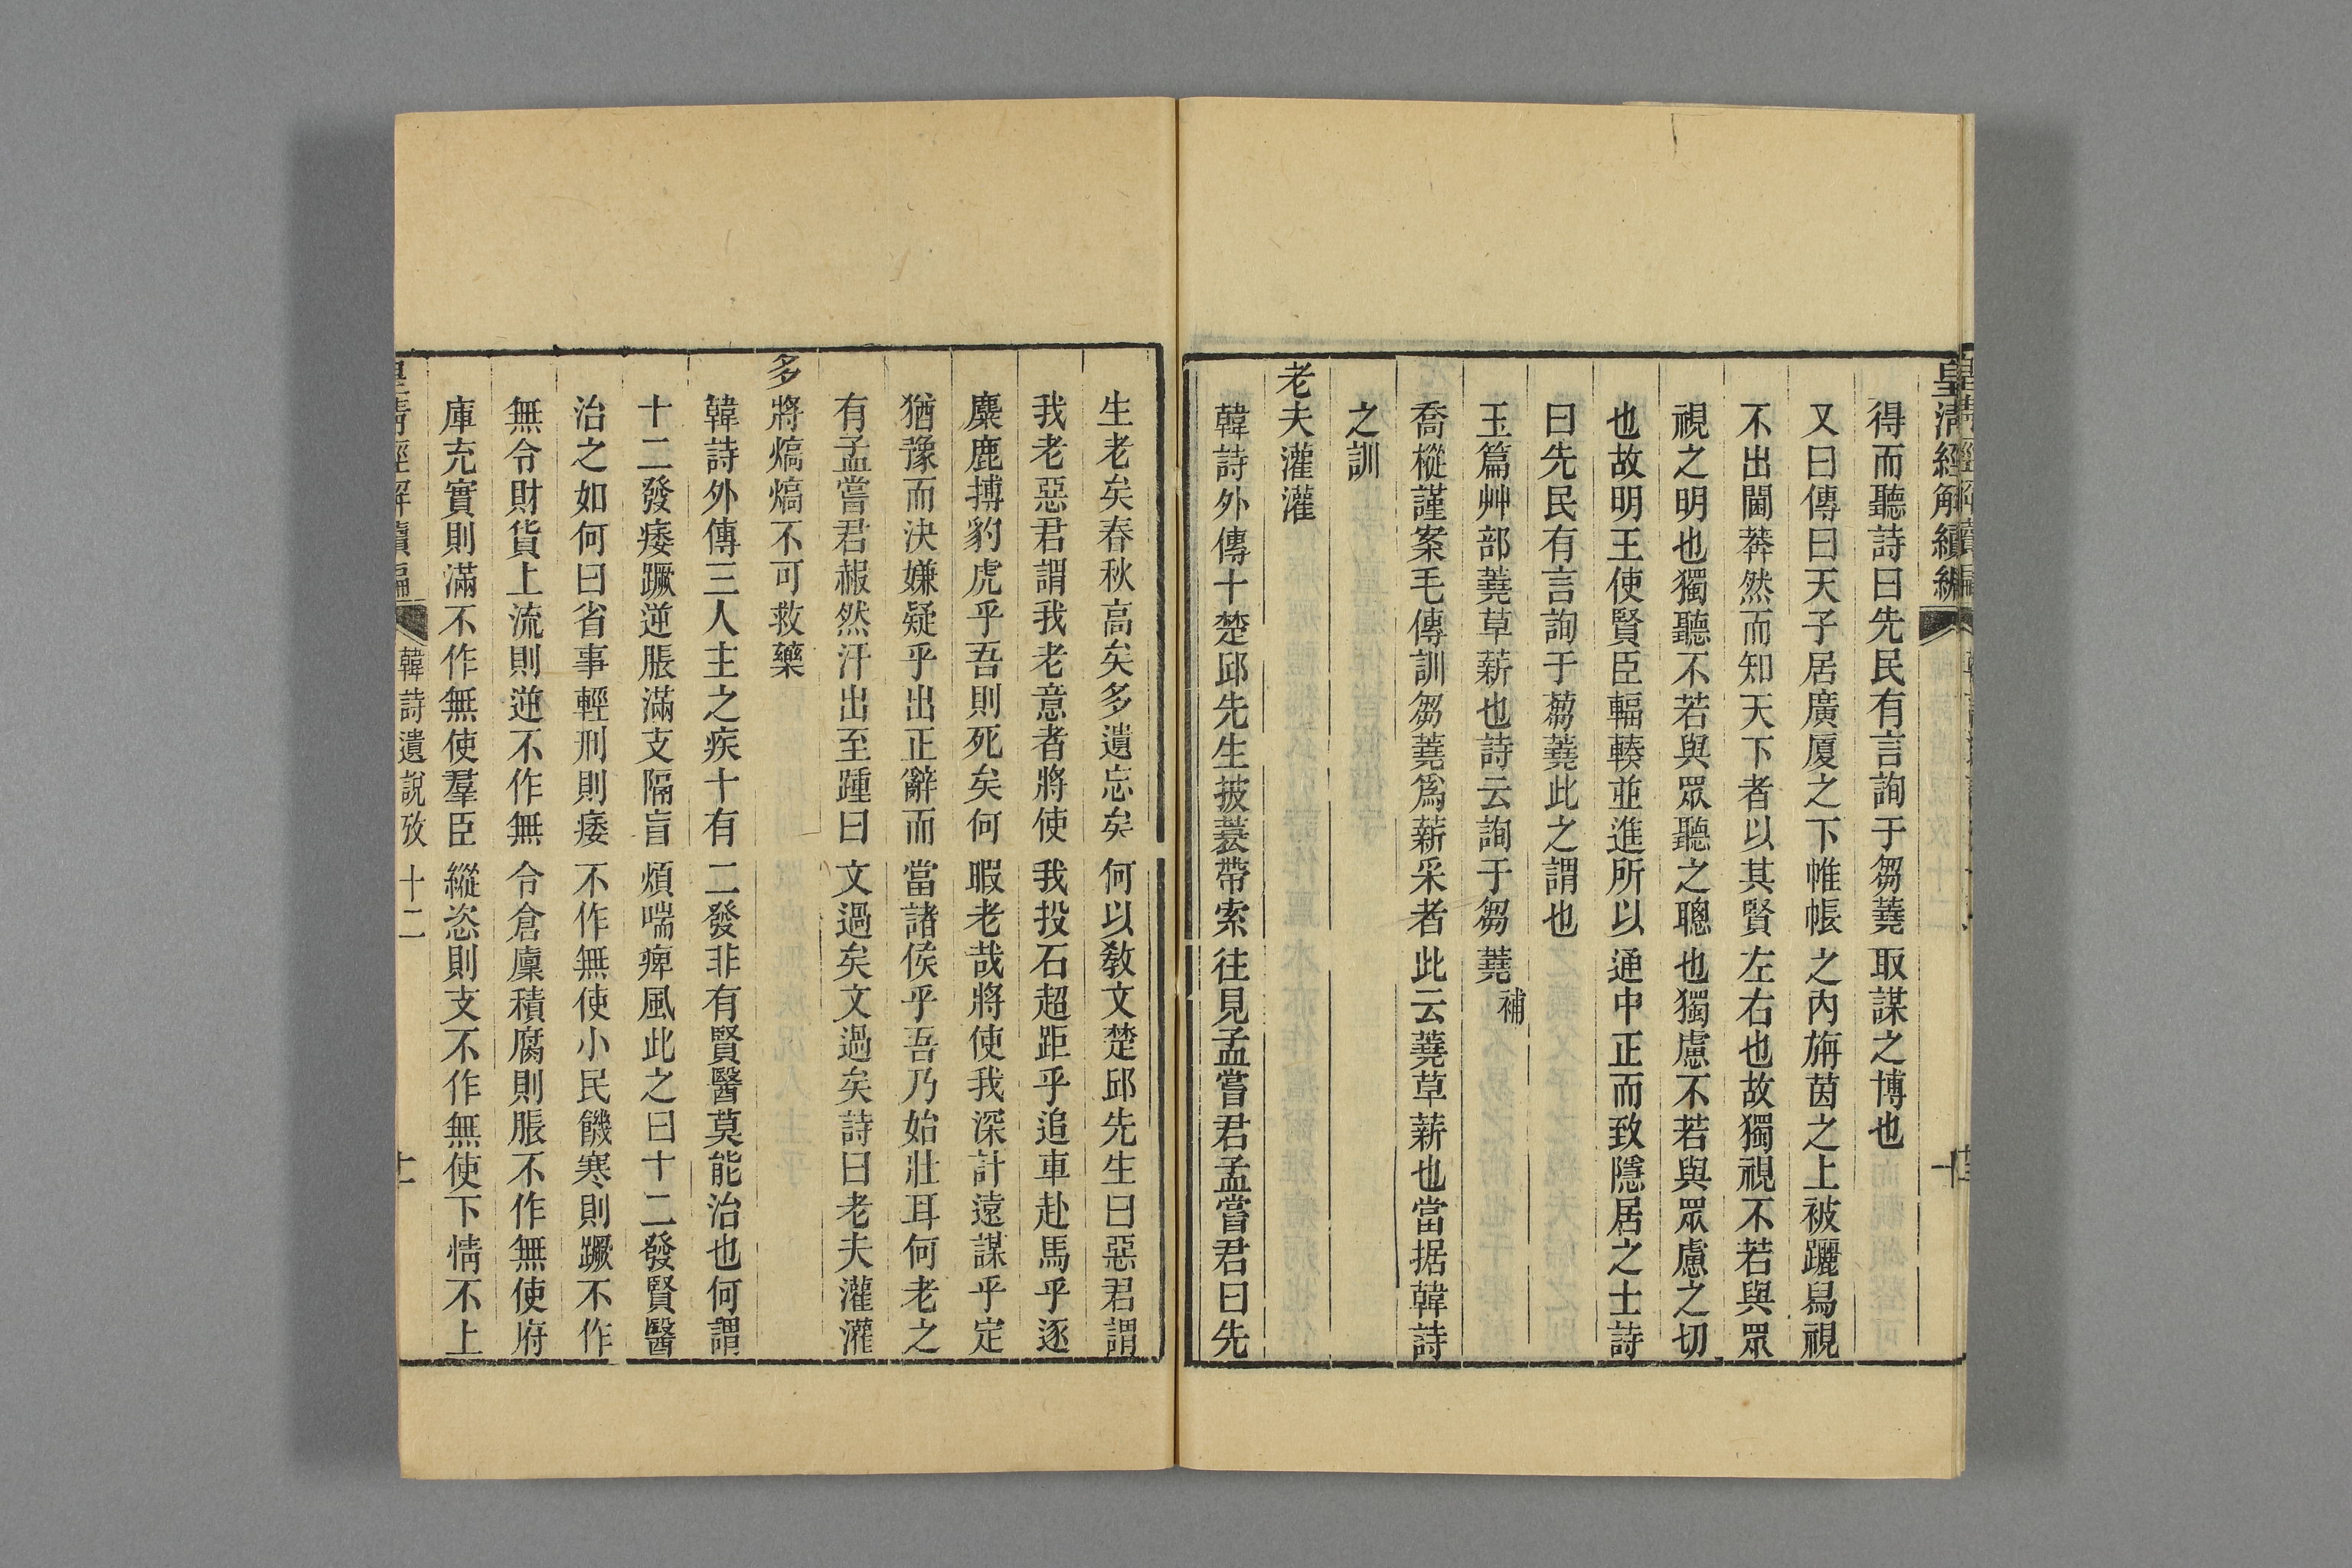 皇清經解續編
得而聽詩曰先民有言詢于芻蕘取謀之博也
又曰傳曰天子居廣厦之下帷帳之內旃茵之上被躧舄視
不出閫莽然而知天下者以其賢左右也故獨視不若與眾
視之明也獨聽不若與眾聽之聰也獨慮不若與眾慮之切
也故明王使賢臣輻輳並進所以通中正而致隱居之士詩
曰先民有言詢于蒭蕘此之謂也
玉篇艸部蕘草薪也詩云詢于芻蕘補
喬樅謹案毛傳訓芻蕘爲薪采者此云蕘草薪也當据韓詩
之訓
老夫灌灌
韓詩外傳十楚邱先生披蓑帶索往見孟嘗君孟嘗君曰先
生老矣春秋高矣多遺忘矣何以敎文楚邱先生曰惡君謂
我老惡君謂我老意者將使我投石超距乎追車赴馬乎逐
麋鹿搏豹虎乎吾則死矣何暇老哉將使我深計遠謀乎定
猶豫而決嫌疑乎出正辭而當諸侯乎吾乃始壯耳何老之
有孟嘗君赧然汗出至踵曰文過矣文過矣詩曰老夫灌灌
多將熇熇不可救藥
韓詩外傳三人主之疾十有二發非有賢醫莫能治也何謂
十二發痿蹶逆脹滿支隔盲煩喘痺風此之曰十二發賢醫
治之如何曰省事輕刑則痿不作無使小民饑寒則蹶不作
無令財貨上流則逆不作無令倉廩積腐則脹不作無使府
庫充實則滿不作無使羣臣縱恣則支不作無使下情不上
皇清經解續編 韓詩遺說攷十二